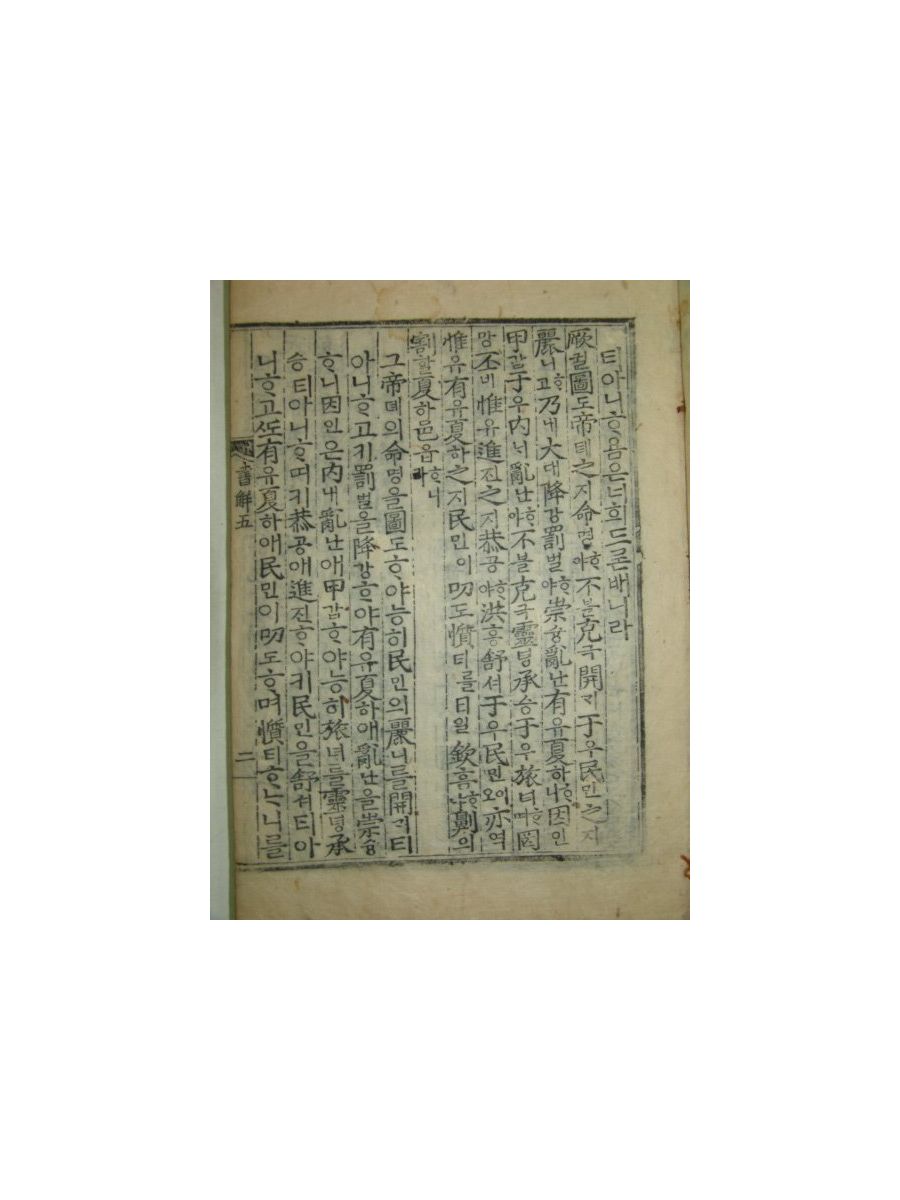 티아니ᄒᆞ욤은너희드론배니라
厥궐圖도帝뎨之지命명ᄒᆞ야不블克극開ᄀᆡ于우民민之지
麗니ᄒᆞ고乃내大대降강罰벌ᄒᆞ야崇슝亂난有유夏하ᄒᆞ니因인
甲갑于우內ᄂᆡ亂난ᄒᆞ야不블克극靈령承승于우旅녀ᄒᆞ며罔
망丕비惟유進진之지恭공ᄒᆞ야洪홍舒셔于우民민이오亦역
惟유有유夏하之지民민이叨도懫티를日일欽흠ᄒᆞ야劓의
割할夏하邑읍ᄒᆞ니라
그帝뎨의命명을圖도ᄒᆞ야능히民민의麗니를開ᄀᆡ티
아니ᄒᆞ고키罰벌을降강ᄒᆞ야有유夏하애亂난을崇슝
ᄒᆞ니因인은內내亂난애甲갑ᄒᆞ야능히旅녀를靈령承
승티아니ᄒᆞ며키恭공애進진ᄒᆞ야키民민을舒셔티아
니ᄒᆞ고ᄯᅩ有유夏하애民민이叨도ᄒᆞ며懫티ᄒᆞᄂᆞ니를
書解五
二